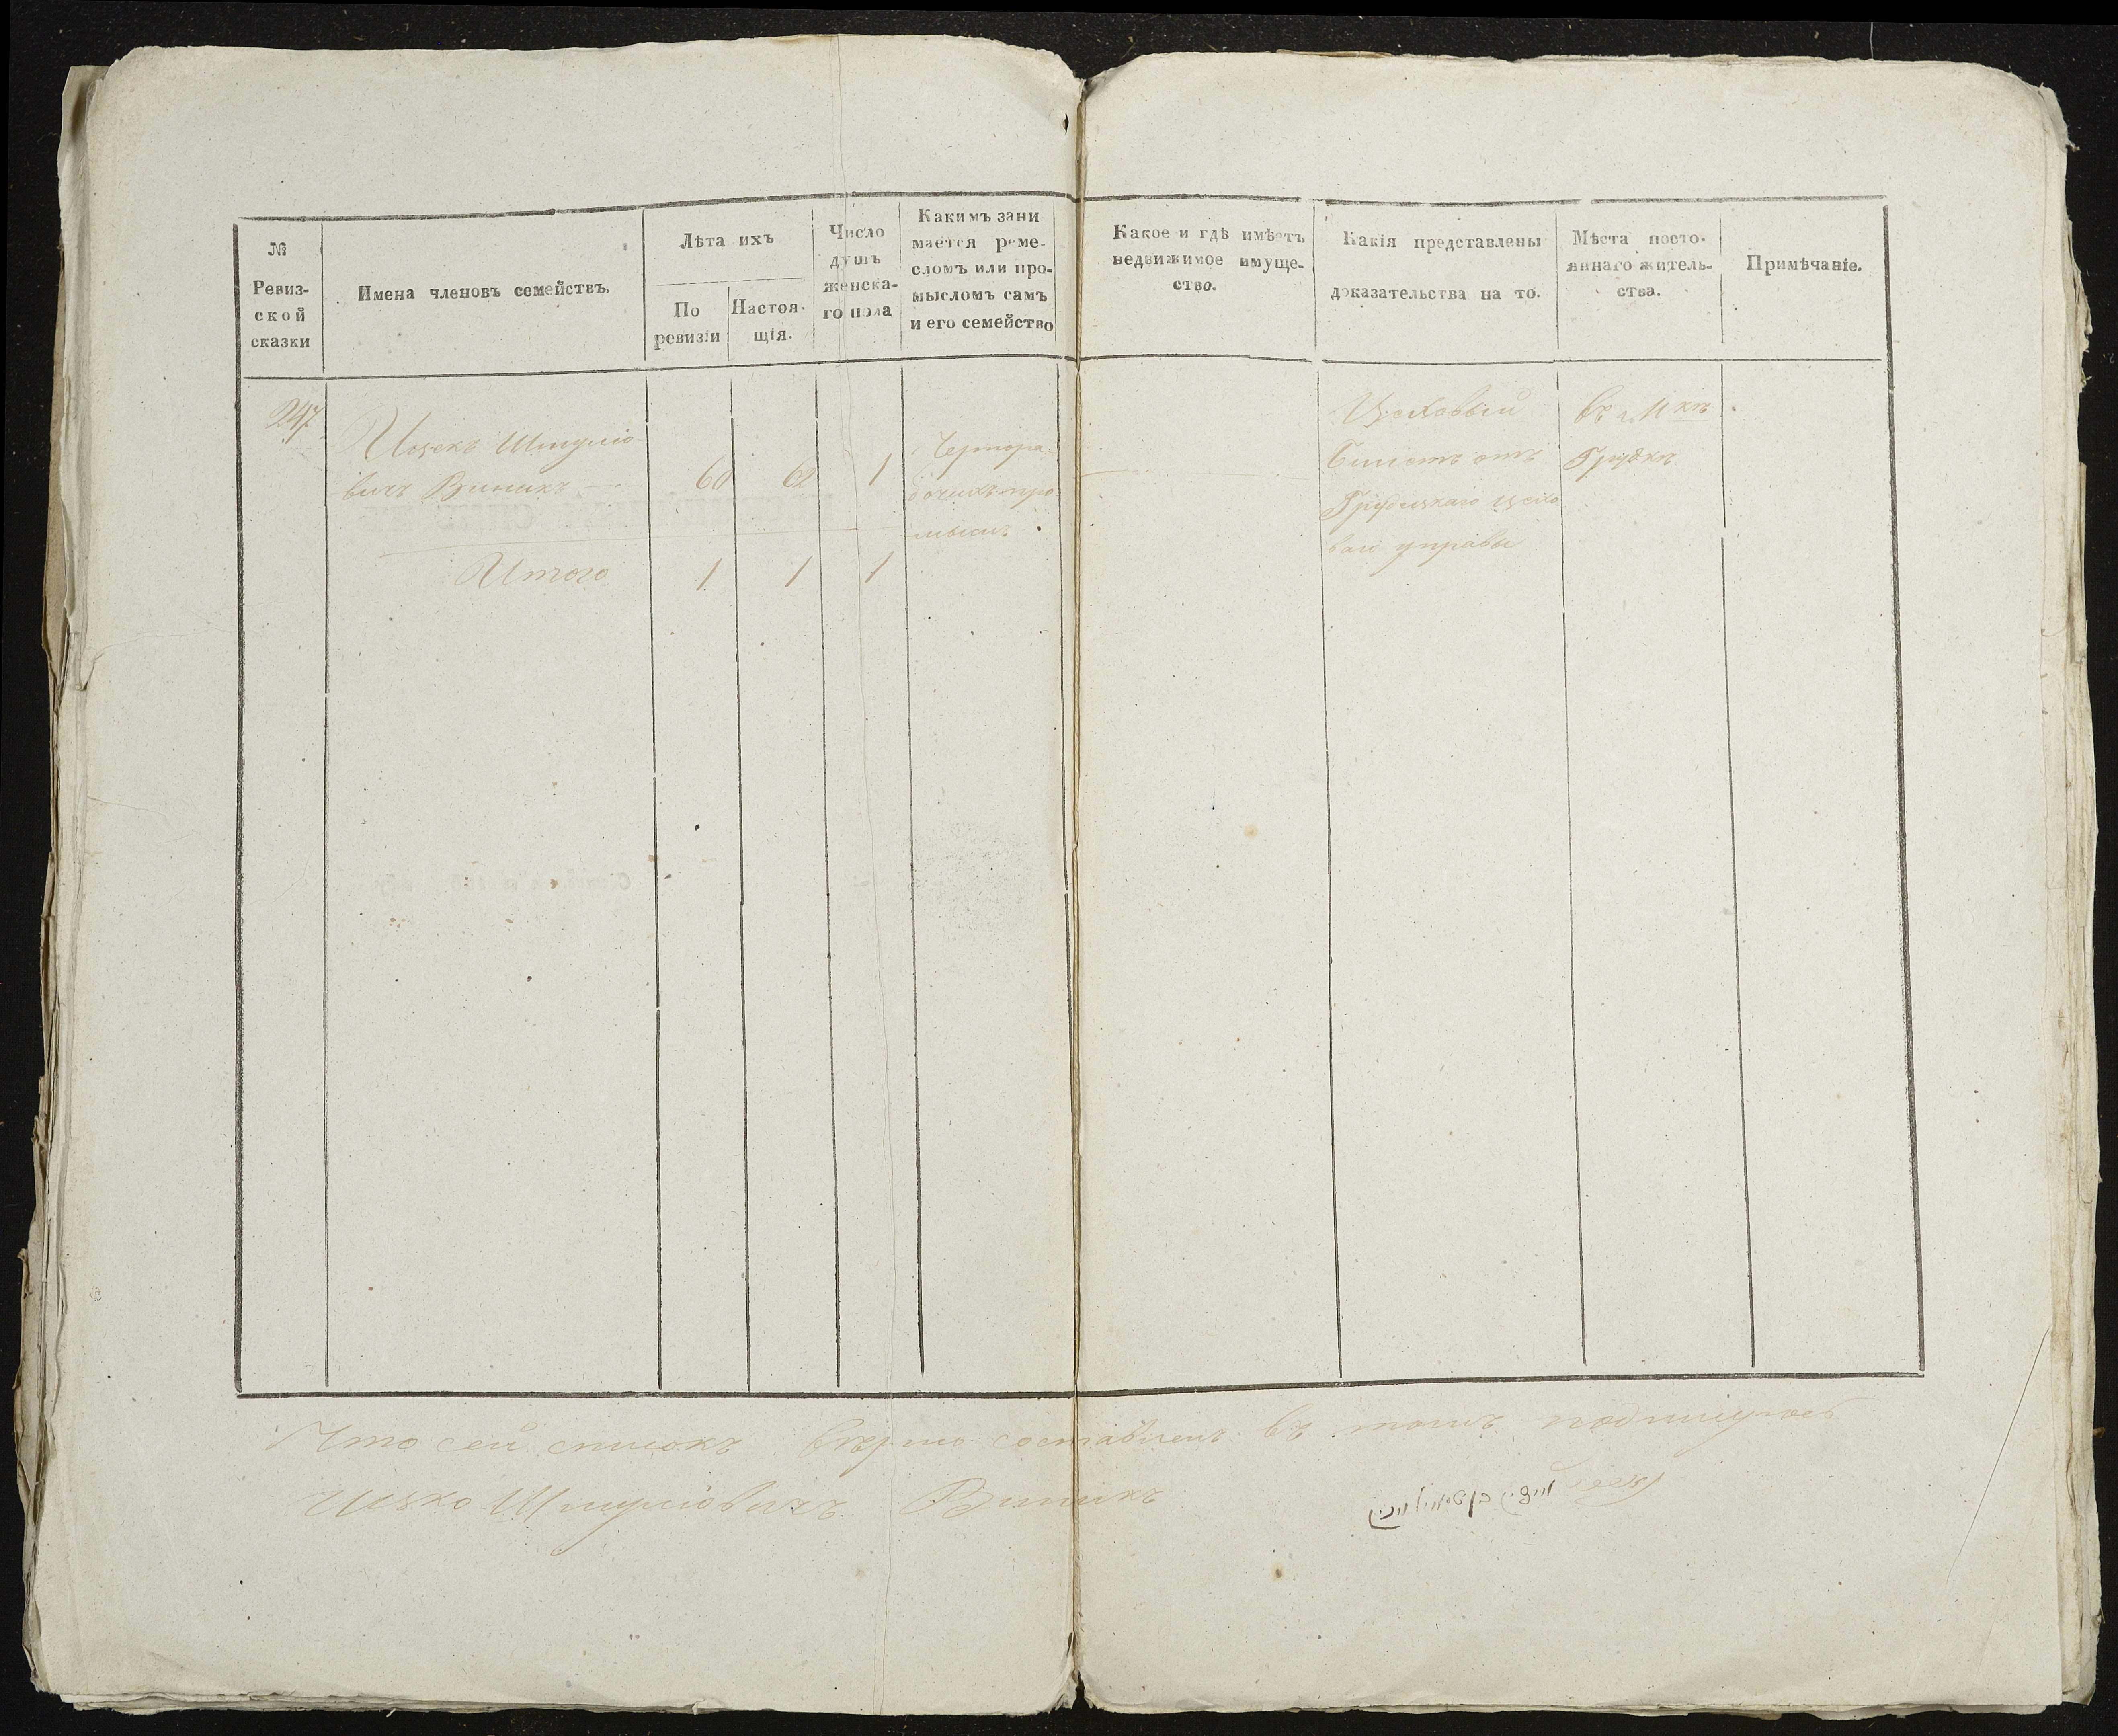 №
Ревиз-
ской
сказки
Имена членовъ семействъ.
Лѣта ихъ
По
ревизіи
Настоя-
щія.
Число
душъ
женска-
го пола
Какимъ зани
мается реме-
сломъ или про-
мысломъ самъ
и его семейство
Какое и гдѣ имѣетъ
недвижимое имуще-
ство.
Какія представлены
доказательства на то.
Мѣста посто-
яннаго житель-
ства.
Примѣчаніе.
247
Ицекъ Шмуліо-
вичъ Виникъ
60 62 1
Чернора-
бочихъ про-
мысл.
Цеховый
билетъ отъ
Грудецкаго цехо
вой управы
въ м-кѣ
Грудкѣ
Итого 1 1 1
Что сей списокъ вѣрно составленъ въ томъ подпишуюсь
Ицко Шмуліовичъ Виникъ